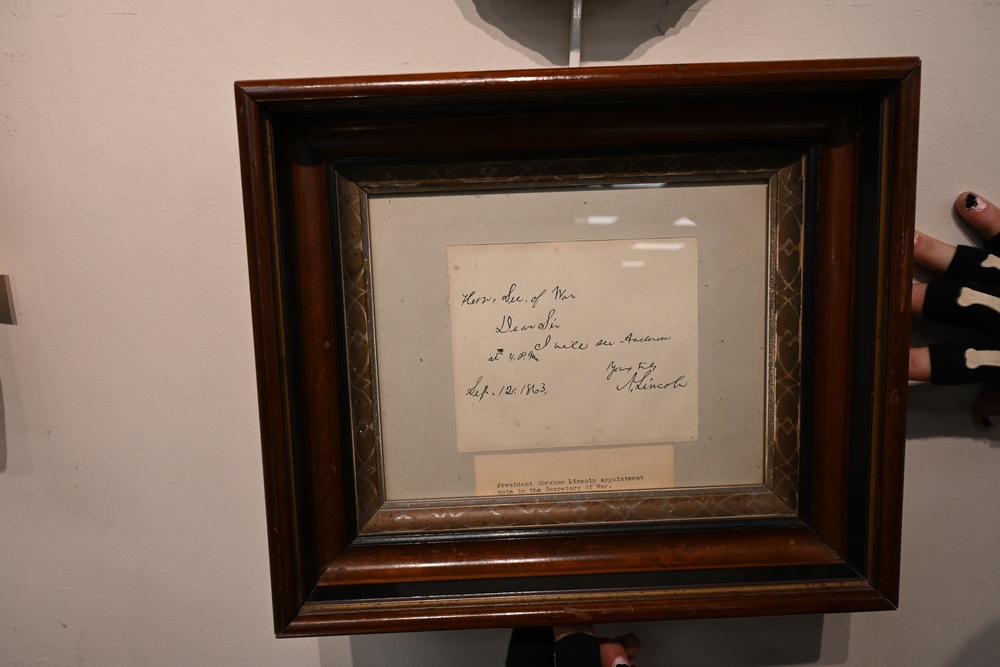 Hon. Sec. of War
Dear Sir
I will see Anderson
at 4. P.M.
Yours truly
Sep. 12. 1863. A. Lincoln
President Abraham Lincoln appointment
note to the Secretary of War.